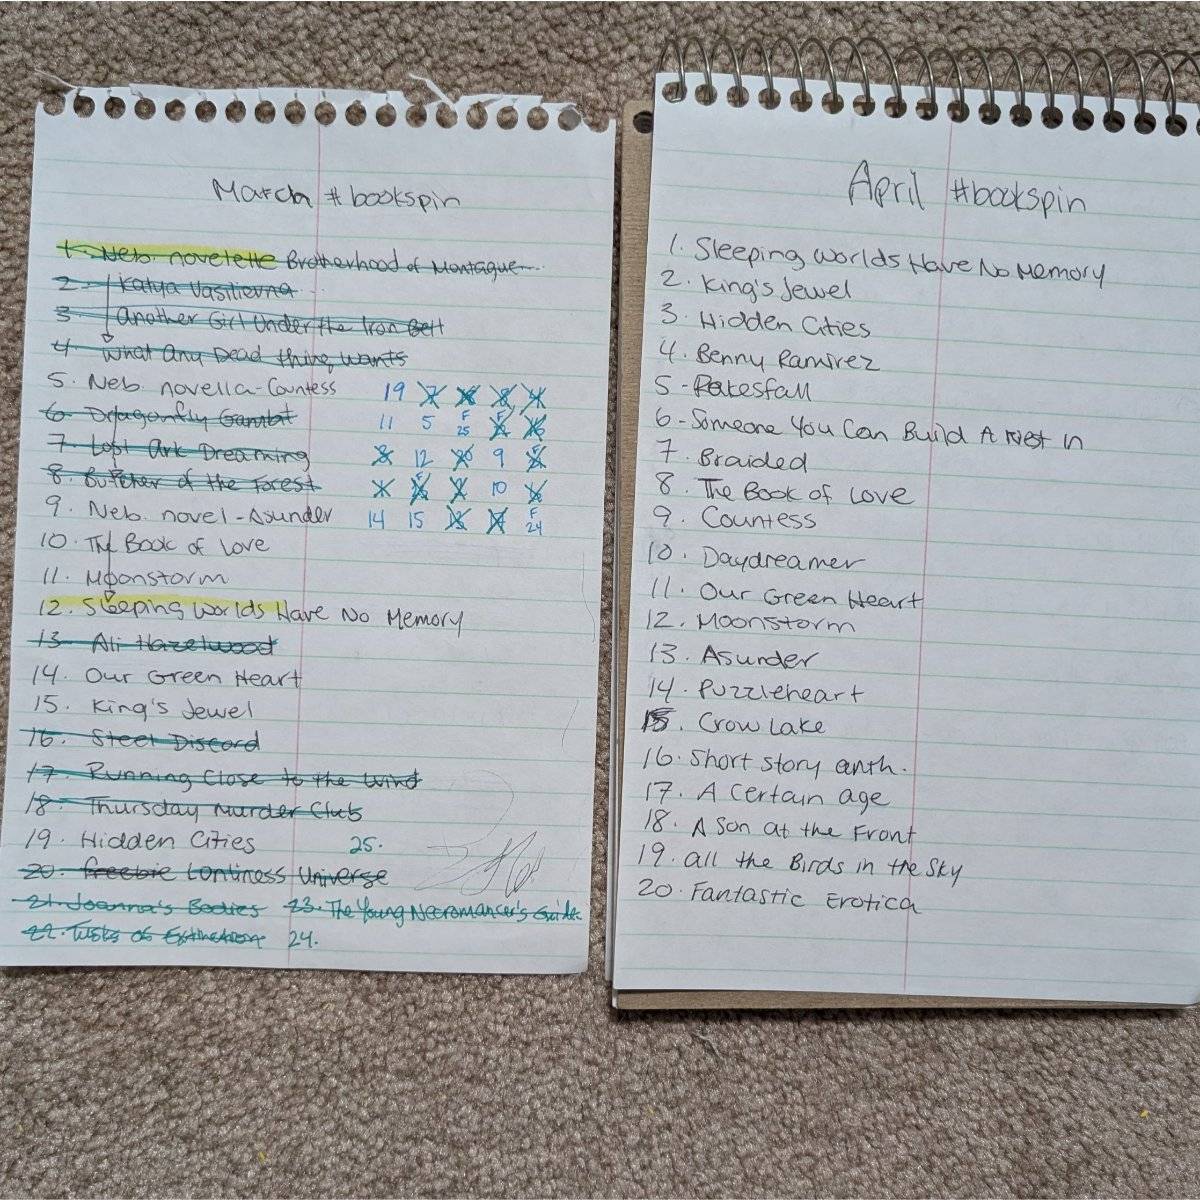 March #bookspin
1. Neb. novelette Brotherhood of Montague
2. Katya Vasilievna
3. Another Girl Under the Iron Belt
4. What Any Dead thing wants
5. Neb. novella-Countess
6. Dragonfly Gambit
7. Lost Ark Dreaming
8. Butcher of the Forest
9. Neb. novel-Asunder
19
11 5 F 25
12 9
10
14 15 F 24
10. The Book of Love
11. Moonstorm
12. Sleeping Worlds Have No Memory
13. Ali Hazelwood
14. Our Green Heart
15. King's Jewel
16. Steel Discord
17. Running Close to the Wind
18. Thursday Murder Club
19. Hidden Cities 25.
20. freebie Lonliness Universe
21. Joanna's Bodies 23. The Young Necromancer's Guide
22. Tusks of Extinction 24.
April #bookspin
1. Sleeping Worlds Have No Memory
2. King's Jewel
3. Hidden Cities
4. Benny Ramirez
5-Rakesfall
6-Someone You Can Build A Nest in
7. Braided
8. The Book of Love
9. Countess
10. Daydreamer
11. Our Green Heart
12. Moonstorm
13. Asunder
14. Puzzleheart
15. Crow Lake
16. Short story anth.
17. A Certain age
18. A Son at the Front
19. all the Birds in the Sky
20. Fantastic Erotica